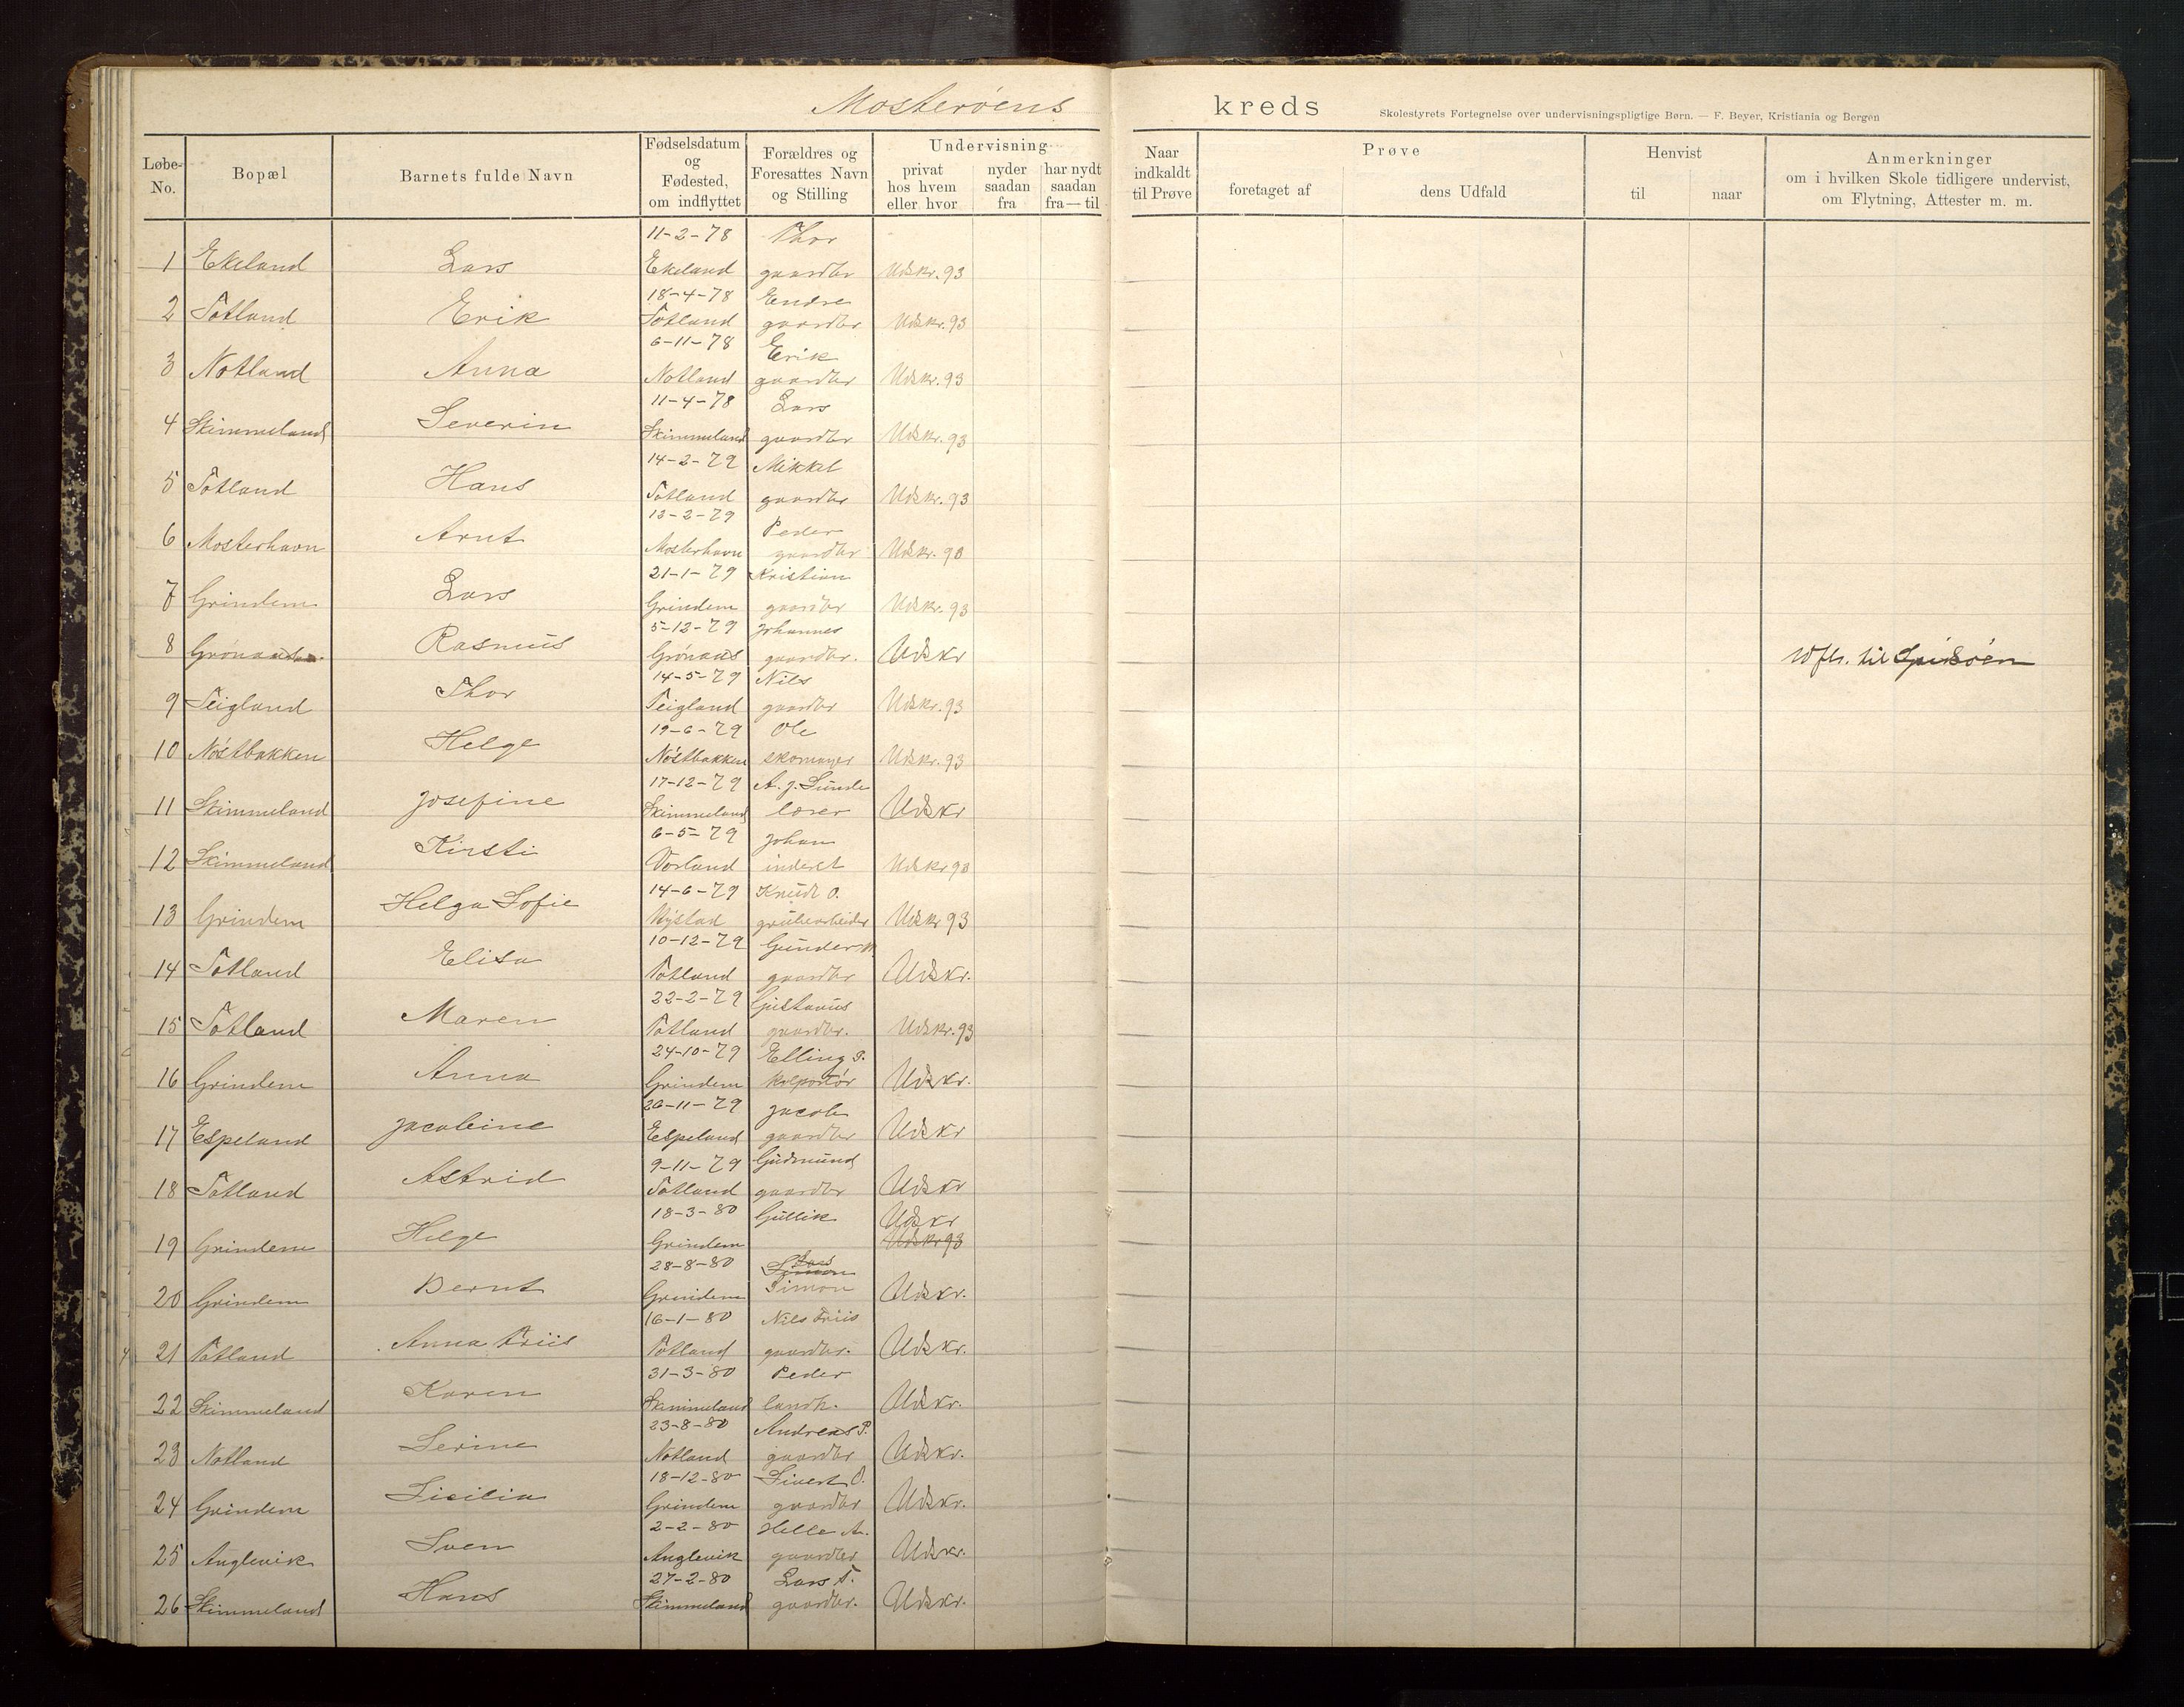 Mosterøens kreds
Skolestyrets Fortegnelse over undervisningspligtige Børn. — F. Beyer, Kristiania og Bergen
Løbe-No. Bopæl Barnets fulde Navn Fødselsdatum og Fødested, om indflyttet Forældres og Foresattes Navn og Stilling Undervisning privat hos hvem eller hvor nyder saadan fra har nydt saadan fra—til Naar indkaldt til Prøve Prøve foretaget af dens Udfald Henvist til naar Anmerkninger om i hvilken Skole tidligere undervist, om Flytning, Attester m. m.
11-2-78 Thor
1 Ekeland Lars Ekeland gaardbr Udskr. 93
18-4-78 Endre
2 Totland Erik Totland gaardbr Udskr. 93
6-11-78 Erik
3 Notland Anna Notland gaardbr Udskr. 93
11-4-78 Lars
4 Skimmeland Severin Skimmeland gaardbr Udskr. 93
14-2-79 Mikkel
5 Totland Hans Totland gaardbr Udskr. 93
13-2-79 Peder
6 Mosterhavn Arnt Mosterhavn gaardbr Udskr. 93
21-1-79 Kristian
7 Grindem Lars Grindem gaardbr Udskr. 93
5-12-79 Johannes
8 Grønaas Rasmus Grønaas gaardbr. Udskr Udfl. til Spidsøen
14-5-79 Nils
9 Teigland Thor Teigland gaardbr Udskr. 93
19-6-79 Ole
10 Nøstbakken Helge Nøstbakken skomager Udskr. 93
17-12-79 A. J. Sunde
11 Skimmeland Josefine Skimmeland lærer Udskr
6-5-79 Johan
12 Skimmeland Kirsti Vorland inderst Udskr 93
14-6-79 Knudt O.
13 Grindem Helga Sofie Nystad grubearbeider Udskr 93
10-12-79 Gunder
14 Totland Elisa Totland gaardbr Udskr.
22-2-79 Gustavus
15 Totland Maren Totland gaardbr. Udskr. 93
24-10-79 Elling
16 Grindem Anna Grindem kolportør Udskr.
26-11-79 Jacob
17 Espeland Jacobine Espeland gaardbr Udskr
9-11-79 Gudmund
18 Totland Astrid Totland gaardbr Udskr
18-3-80 Gullik Udskr
19 Grindem Helge Grindem Udskr 93
28-8-80 Lars Simon
20 Grindem Bernt Grindem Simon Udskr.
16-1-80 Nils Friis
21 Totland Anna Friis Totland gaardbr. Udskr.
31-3-80 Peder
22 Skimmeland Karen Skimmeland landh. Udskr.
23-8-80 Andreas P.
23 Notland Serine Notland gaardbr Udskr.
18-12-80 Sivert O.
24 Grindem Sicilia Grindem gaardbr Udskr.
2-2-80 Helle A.
25 Anglevik Sven Anglevik gaardbr Udskr.
27-2-80 Lars T.
26 Skimmeland Hans Skimmeland gaardbr. Udskr.